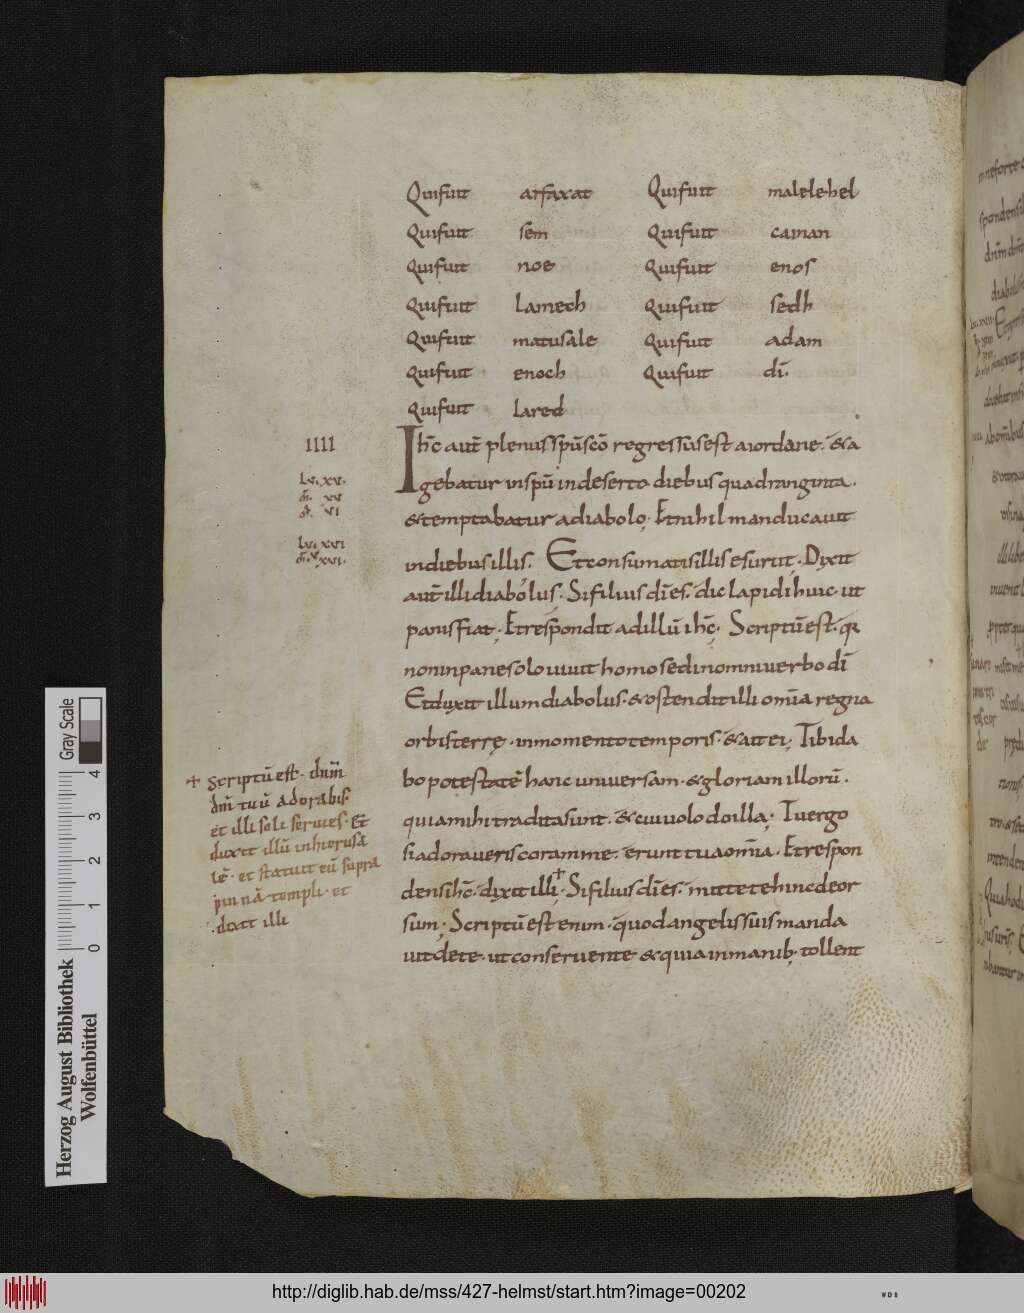 Qui fuit arfaxat
Qui fuit sem
Qui fuit noe
Qui fuit lamech
Qui fuit matusale
Qui fuit enoch
Qui fuit Iared
Qui fuit malelehel
Qui fuit cainan
Qui fuit enos
Qui fuit sedh
Qui fuit adam
Qui fuit dī.
IIII
Ihc̄ aut̄ plenus sp̄u sc̄o regressus est a iordane. & a
gebatur in sp̄u in deserto diebus quadraginta.
& temptabatur a diabolo. Et nihil manducauit
in diebus illis. Et consumatis illis esuriit. Dixit
aut̄ illi diabolus. Si filius dī es. dic lapidi huic ut
panis fiat. Et respondit ad illū ihc̄. Scriptū est. qr
non in pane solo uiuit homo sed in omni uerbo dī
Et duxit illum diabolus. & ostendit illi om̄ia regna
orbis terrę. in momento temporis. & ait ei. Tibi da
bo potestatē hanc uniuersam. & gloriam illorū.
quia mihi tradita sunt. & cui uolo do illa. Tu ergo
si adoraueris coram me. erunt tua om̄ia. Et respon
dens ihc̄. dixit illi. Si filius dī es. mitte te hinc deor
sum. Scriptū est enim. quod angelis suis manda
uit de te. ut conseruent te & quia in manib; tollent
+ Scriptū est. dn̄m
dm̄ tuū adorabis.
et illi soli seruies. Et
duxit illū in hierusa
lē. et statuit eū supra
pinnā templi. et
dixit illi
Herzog August Bibliothek
Wolfenbüttel
Gray Scale
0 1 2 3 4
http://diglib.hab.de/mss/427-helmst/start.htm?image=00202